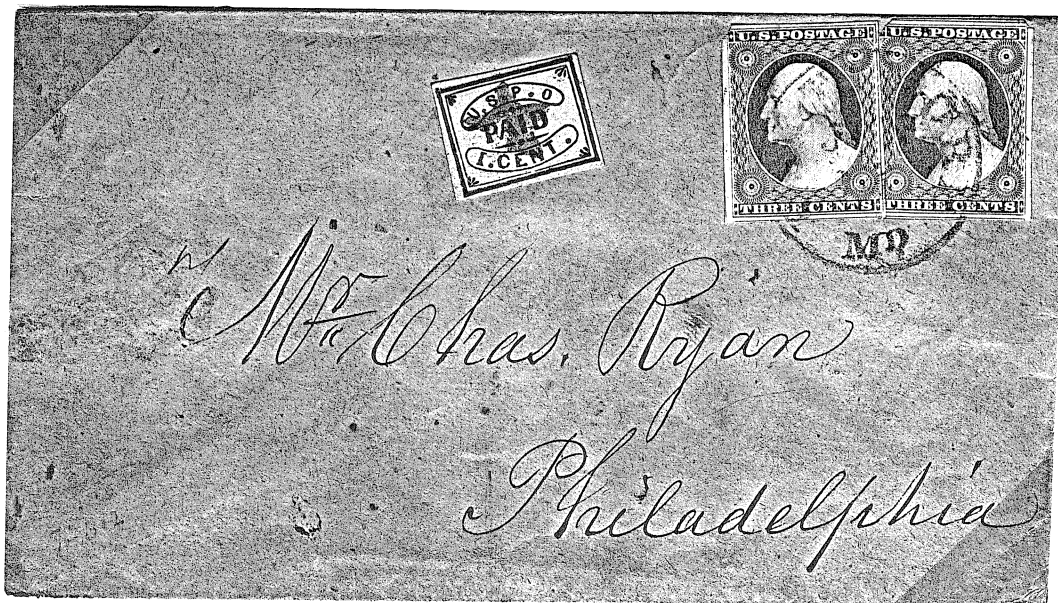 U.S.P.O
PAID
1.CENT.
U.S. POSTAGE
THREE CENTS
U.S. POSTAGE
THREE CENTS
MD
Mr. Chas. Ryan
Philadelphia